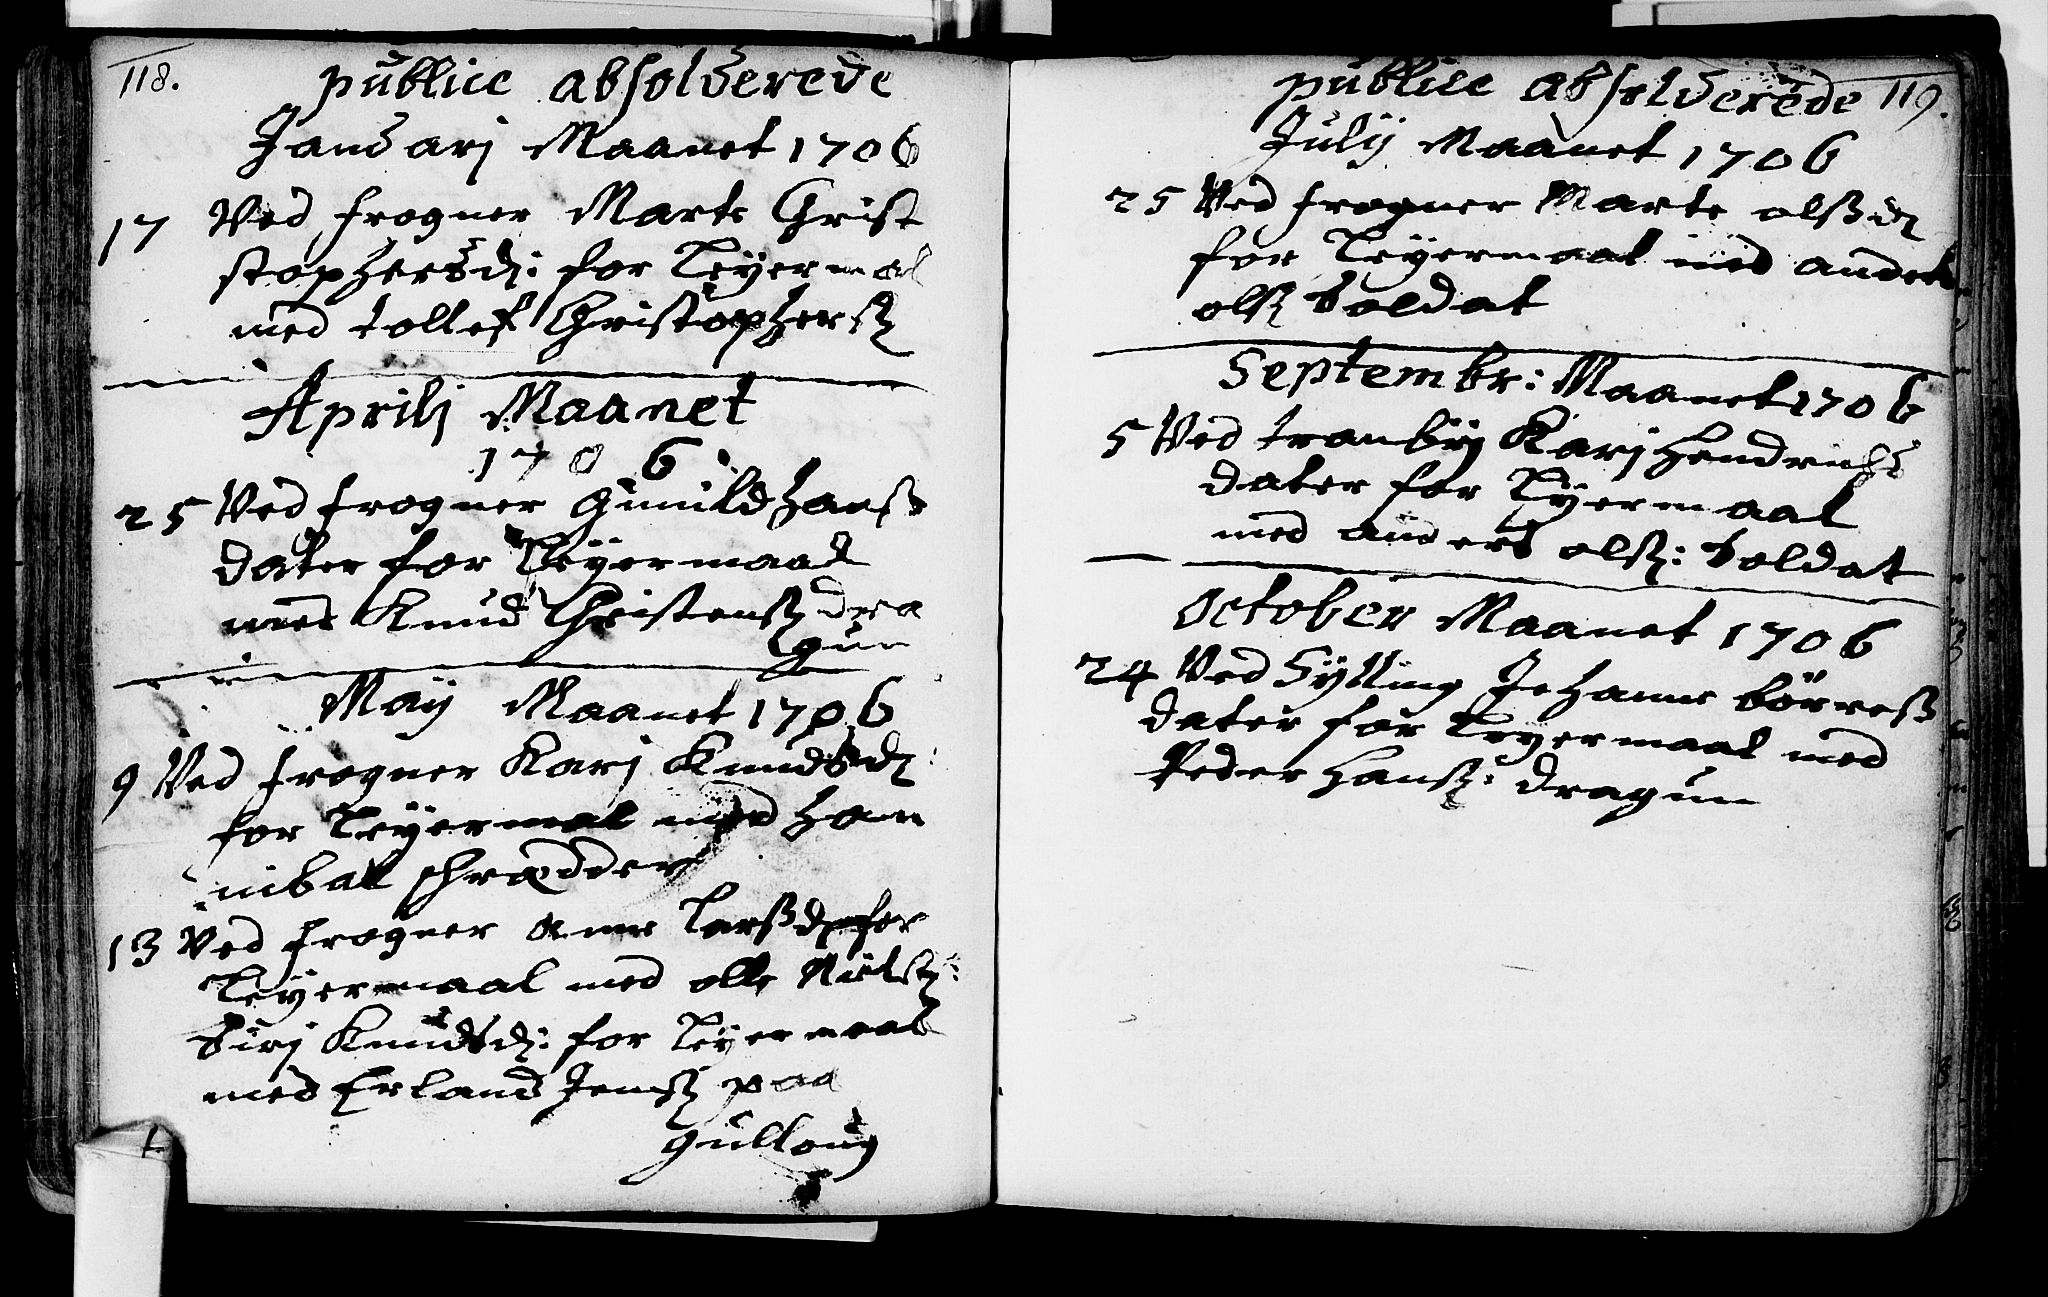 118.
publice absolverede
Januarj Maanet 1706
17 Ved frogner Marte Christ
stophersd: for Leyermal
med tollef Christophersz
Aprilj Maanet
1706
25 Ved frogner Gunild Hanß
dater for Leyermaal
med Knud Christensz dra
gun
Maÿ Maanet 1706
9 Ved frogner Karj Knudsd:
for Leyermaal med Han
nibal schrædder
13 Ved frogner Anne Larßd for
Leyermaal med olle Nielsz:
Sirj Knudsd: for Leyermaal
med Erland Jensz paa
Gulloug
publice absolverede 119.
Julÿ Maanet 1706
25 Ved frogner Marte olßd
for Leyermaal med anders
olsz Soldat
Septembr: Maanet 1706
5 Ved tranbÿ Karj Hendrichs
dater for Lÿermaal
med anders olsz: Soldat
October Maanet 1706
24 Ved Sylling Johanne börreß
dater for Leyermaal med
Peder Hansz: dragun